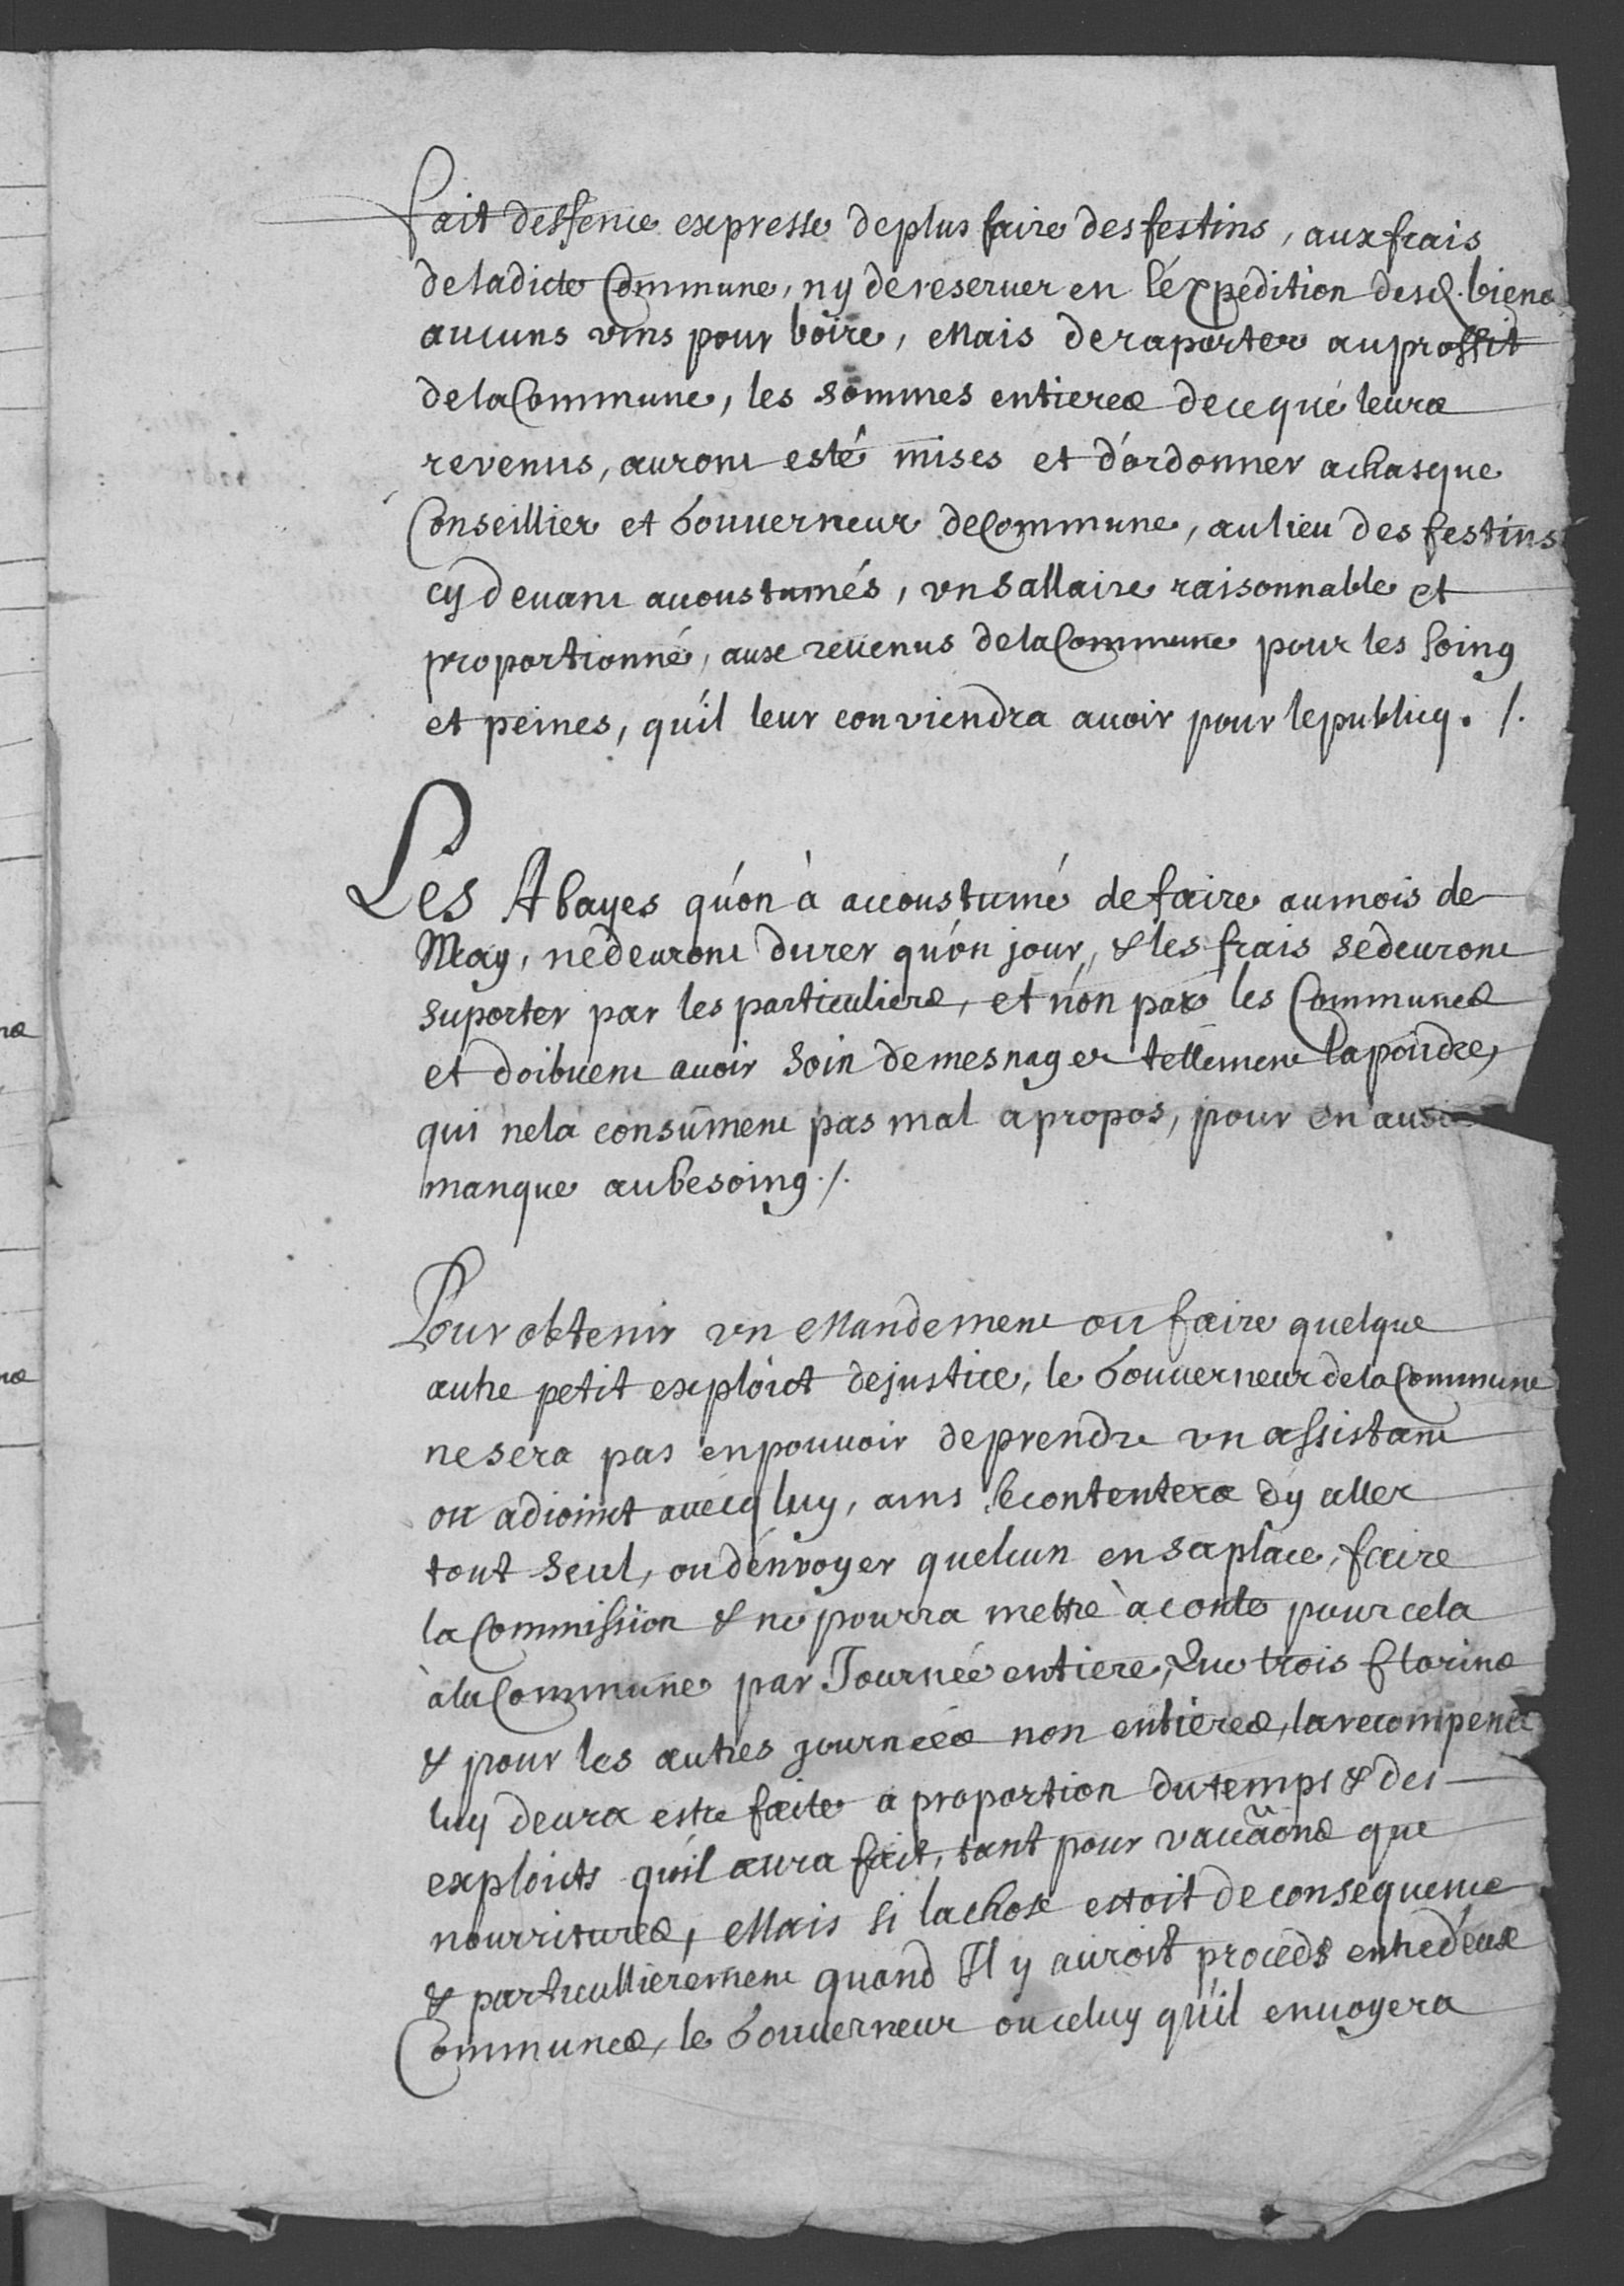 fait deffence expresse de plus faire des festins, aux frais
de ladicte Commune, ny de reseruer en l'éxpedition desd. biens
aucuns vins pour boire, Mais de raporter au proffit
de la Commune, les sommes entieres de ce que leurs
revenus, auront esté mises et d'ordonner a chasque
Conseillier et Gouuerneur de Commune, au lieu des festins
cy deuant acoustumés, vn sallaire raisonnable et
proportionné, aux reuenus de la Commune pour les soing
et peines, qu'il leur conviendra auoir pour le publicq. /.
Les Abayes qu'on à accoustumé de faire au mois de
May, ne deuront durer qu'on jour, & les frais se deuront
suporter par les particuliers, et non par les Communes
et doibuent auoir soin de mesnager tellement la poudre,
qui ne la consument pas mal a propos, pour en
manque au besoing ./.
Pour obtenir vn Mandement ou faire quelque
autre petit exploict de justice, le Gouuerneur de la Commune
ne sera pas en pouuoir de prendre vn assistant
ou adioinct auecq luy, ains se contentera d'y aller
tout seul, ou d'énvoyer quelcun en sa place, faire
la Commission & ne pourra mettre à conte pour cela
à la Commune par Journée entiere, Que trois florins
& pour les autres journées non entieres, la recompence
luy deura estre faite a proportion du temps & des
exploicts qu'il aura fait, tant pour vacuãons que
nourritures, Mais si la chose estoit de consequence
& particullierement quand Il y auroit proceds entre deux
Communes, le Gouuerneur ou celuy qu'il enuoyera